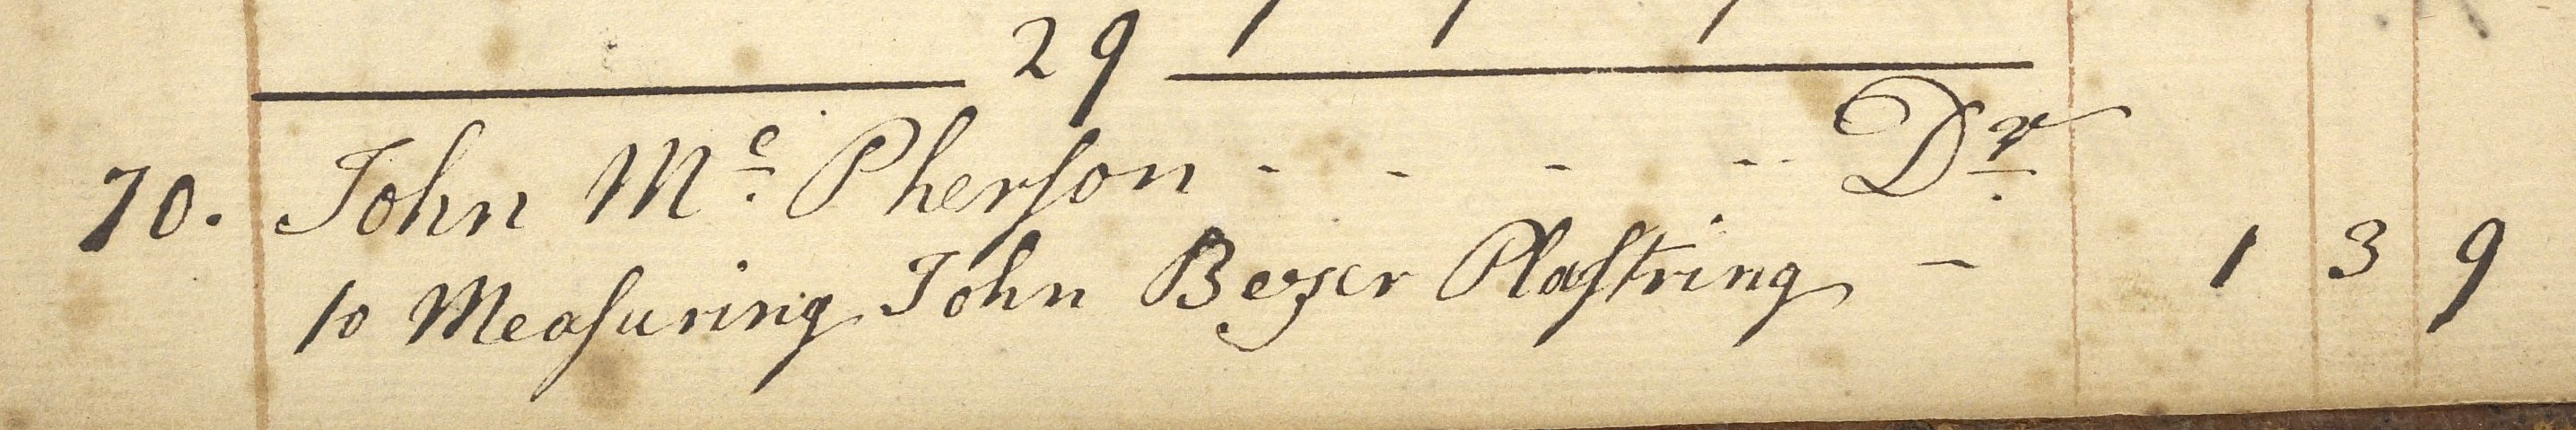 29
70. John Mc. Pherſon - - - -- Dr.
to Meaſuring John Beyer Plaſtring - 1 3 9